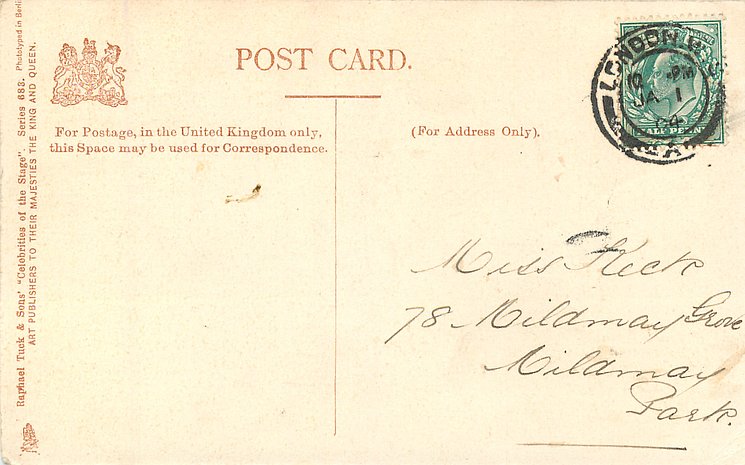 Raphael Tuck & Sons' "Celebrities of the Stage". Series 683. Phototyped in Berlin
ART PUBLISHERS TO THEIR MAJESTIES THE KING AND QUEEN.
POST CARD.
For Postage, in the United Kingdom only,
this Space may be used for Correspondence.
(For Address Only).
LONDON
PM
JA 1
04
HALF PENNY
Miss Keck
78 Mildmay Grove
Mildmay
Park.